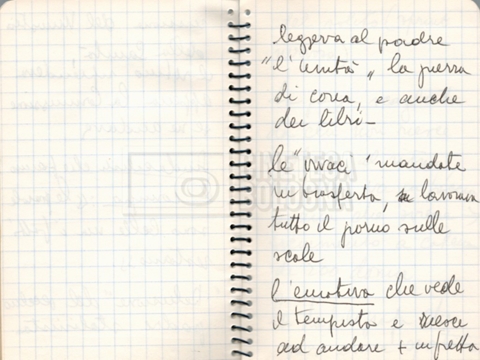 leggeva al padre
"l'Unità" la guerra
di Corea, e anche
dei libri -
le "vivaci" mandate
in trasferta, lavorava
tutto il giorno sulle
scale
l'emotiva che vede
il tempista e riesce
ad andare + in fretta